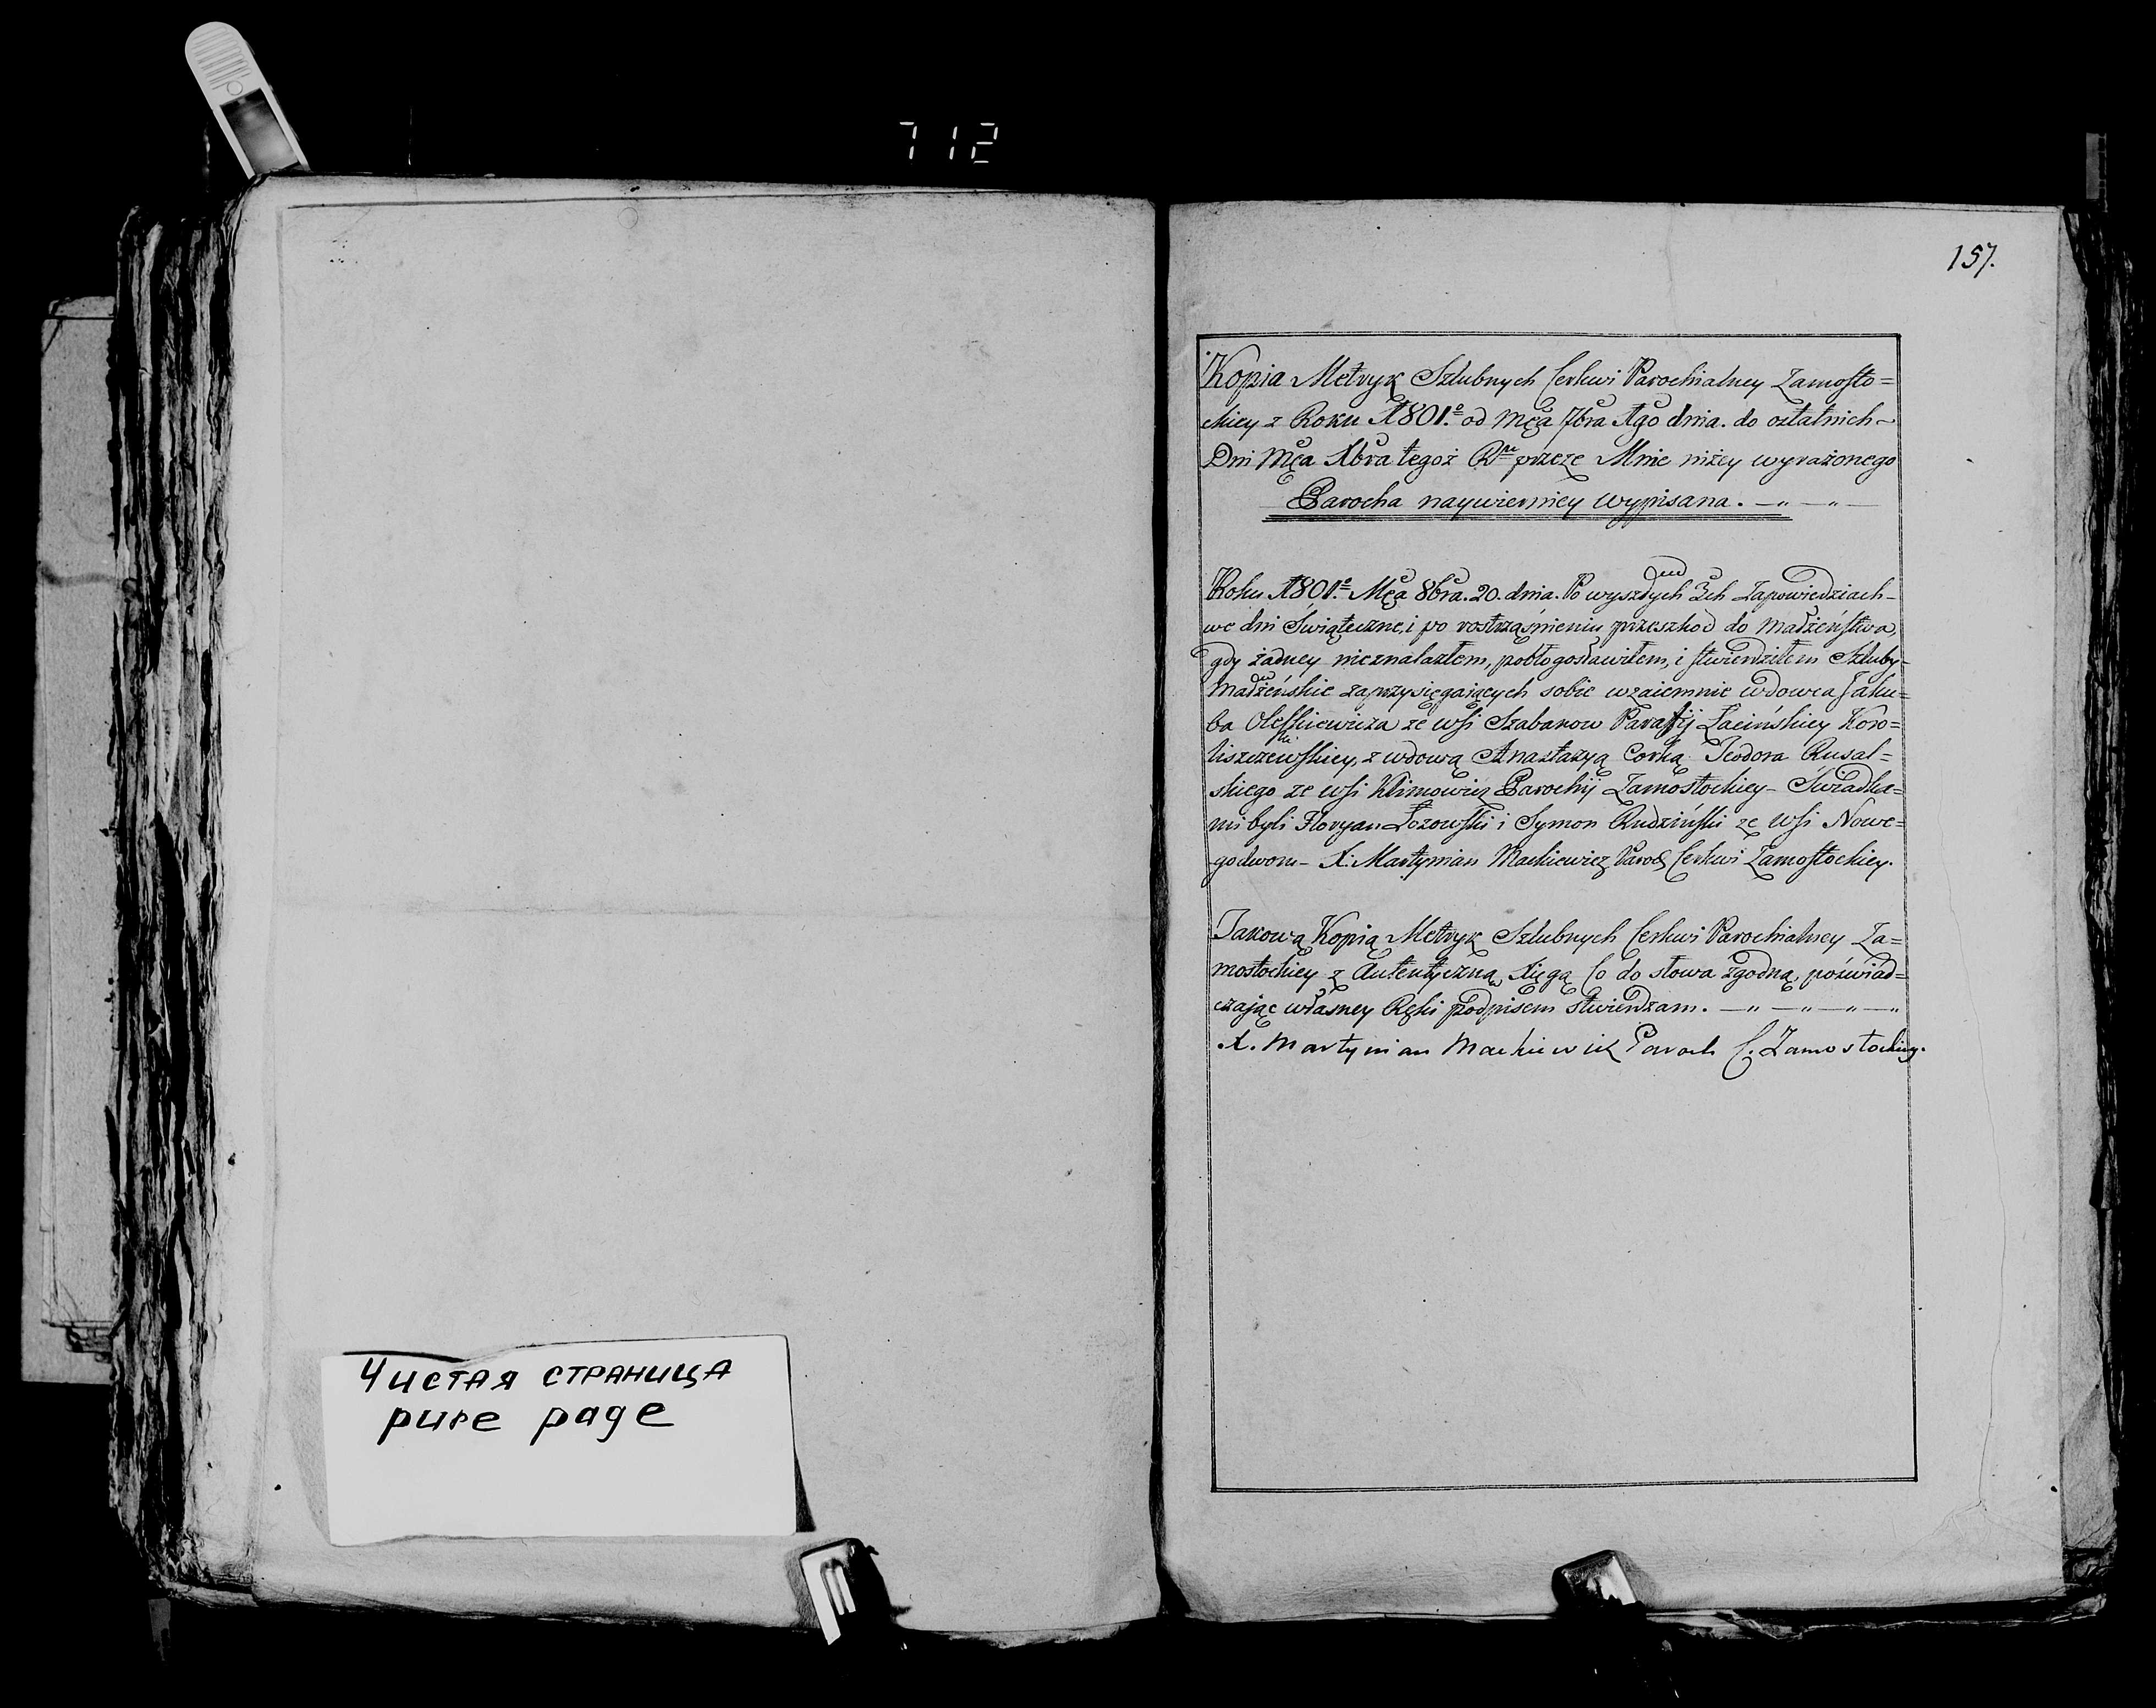 712
157.
Kopia Metryk Szlubnych Cerkwi Parochialney Zamosto=
ckiey z Roku 1801º od Mca 7bra 1go dnia. do ostatnich
Dni Mca Xbra tegoż przeze Mnie niżey wyrażonego
Parocha naywierniey wypisana.
Roku 1801º Mca 8bra. 20. dnia. Po wyszłych 3ch Zapowiedziach
we dni Świąteczne, i po rostrząśnieniu przeszkod do Małżeństwa,
gdy żadney nieznalazłem, pobłogosławiłem, i stwierdziłem Szluby
Małżeńskie zaprzysięgających sobie wzaiemnie wdowca Jaku=
ba Oleskiewicza ze wsi Szabanow Parafij Łacińskiey Koro=
liszczewskiey, z wdową Anastazyą Corką Teodora Rusal=
skiego ze wsi Klimowicz Parochij Zamostockiey – Świadka=
mi byli Floryan Łozowski i Symon Rudziński ze wsi Nowe=
godworu – X. Martynian Mackiewicz Paroch Cerkwi Zamostockiey.
Takową Kopią Metryk Szlubnych Cerkwi Parochialney Za=
mostockiey z Autentyczną Xięgą Co do słowa zgodną, poświad=
czając własney Ręki podpisem stwierdzam.
X. Martynian Mackiewicz Paroch C. Zamostockiey.
Чистая страница
pure page